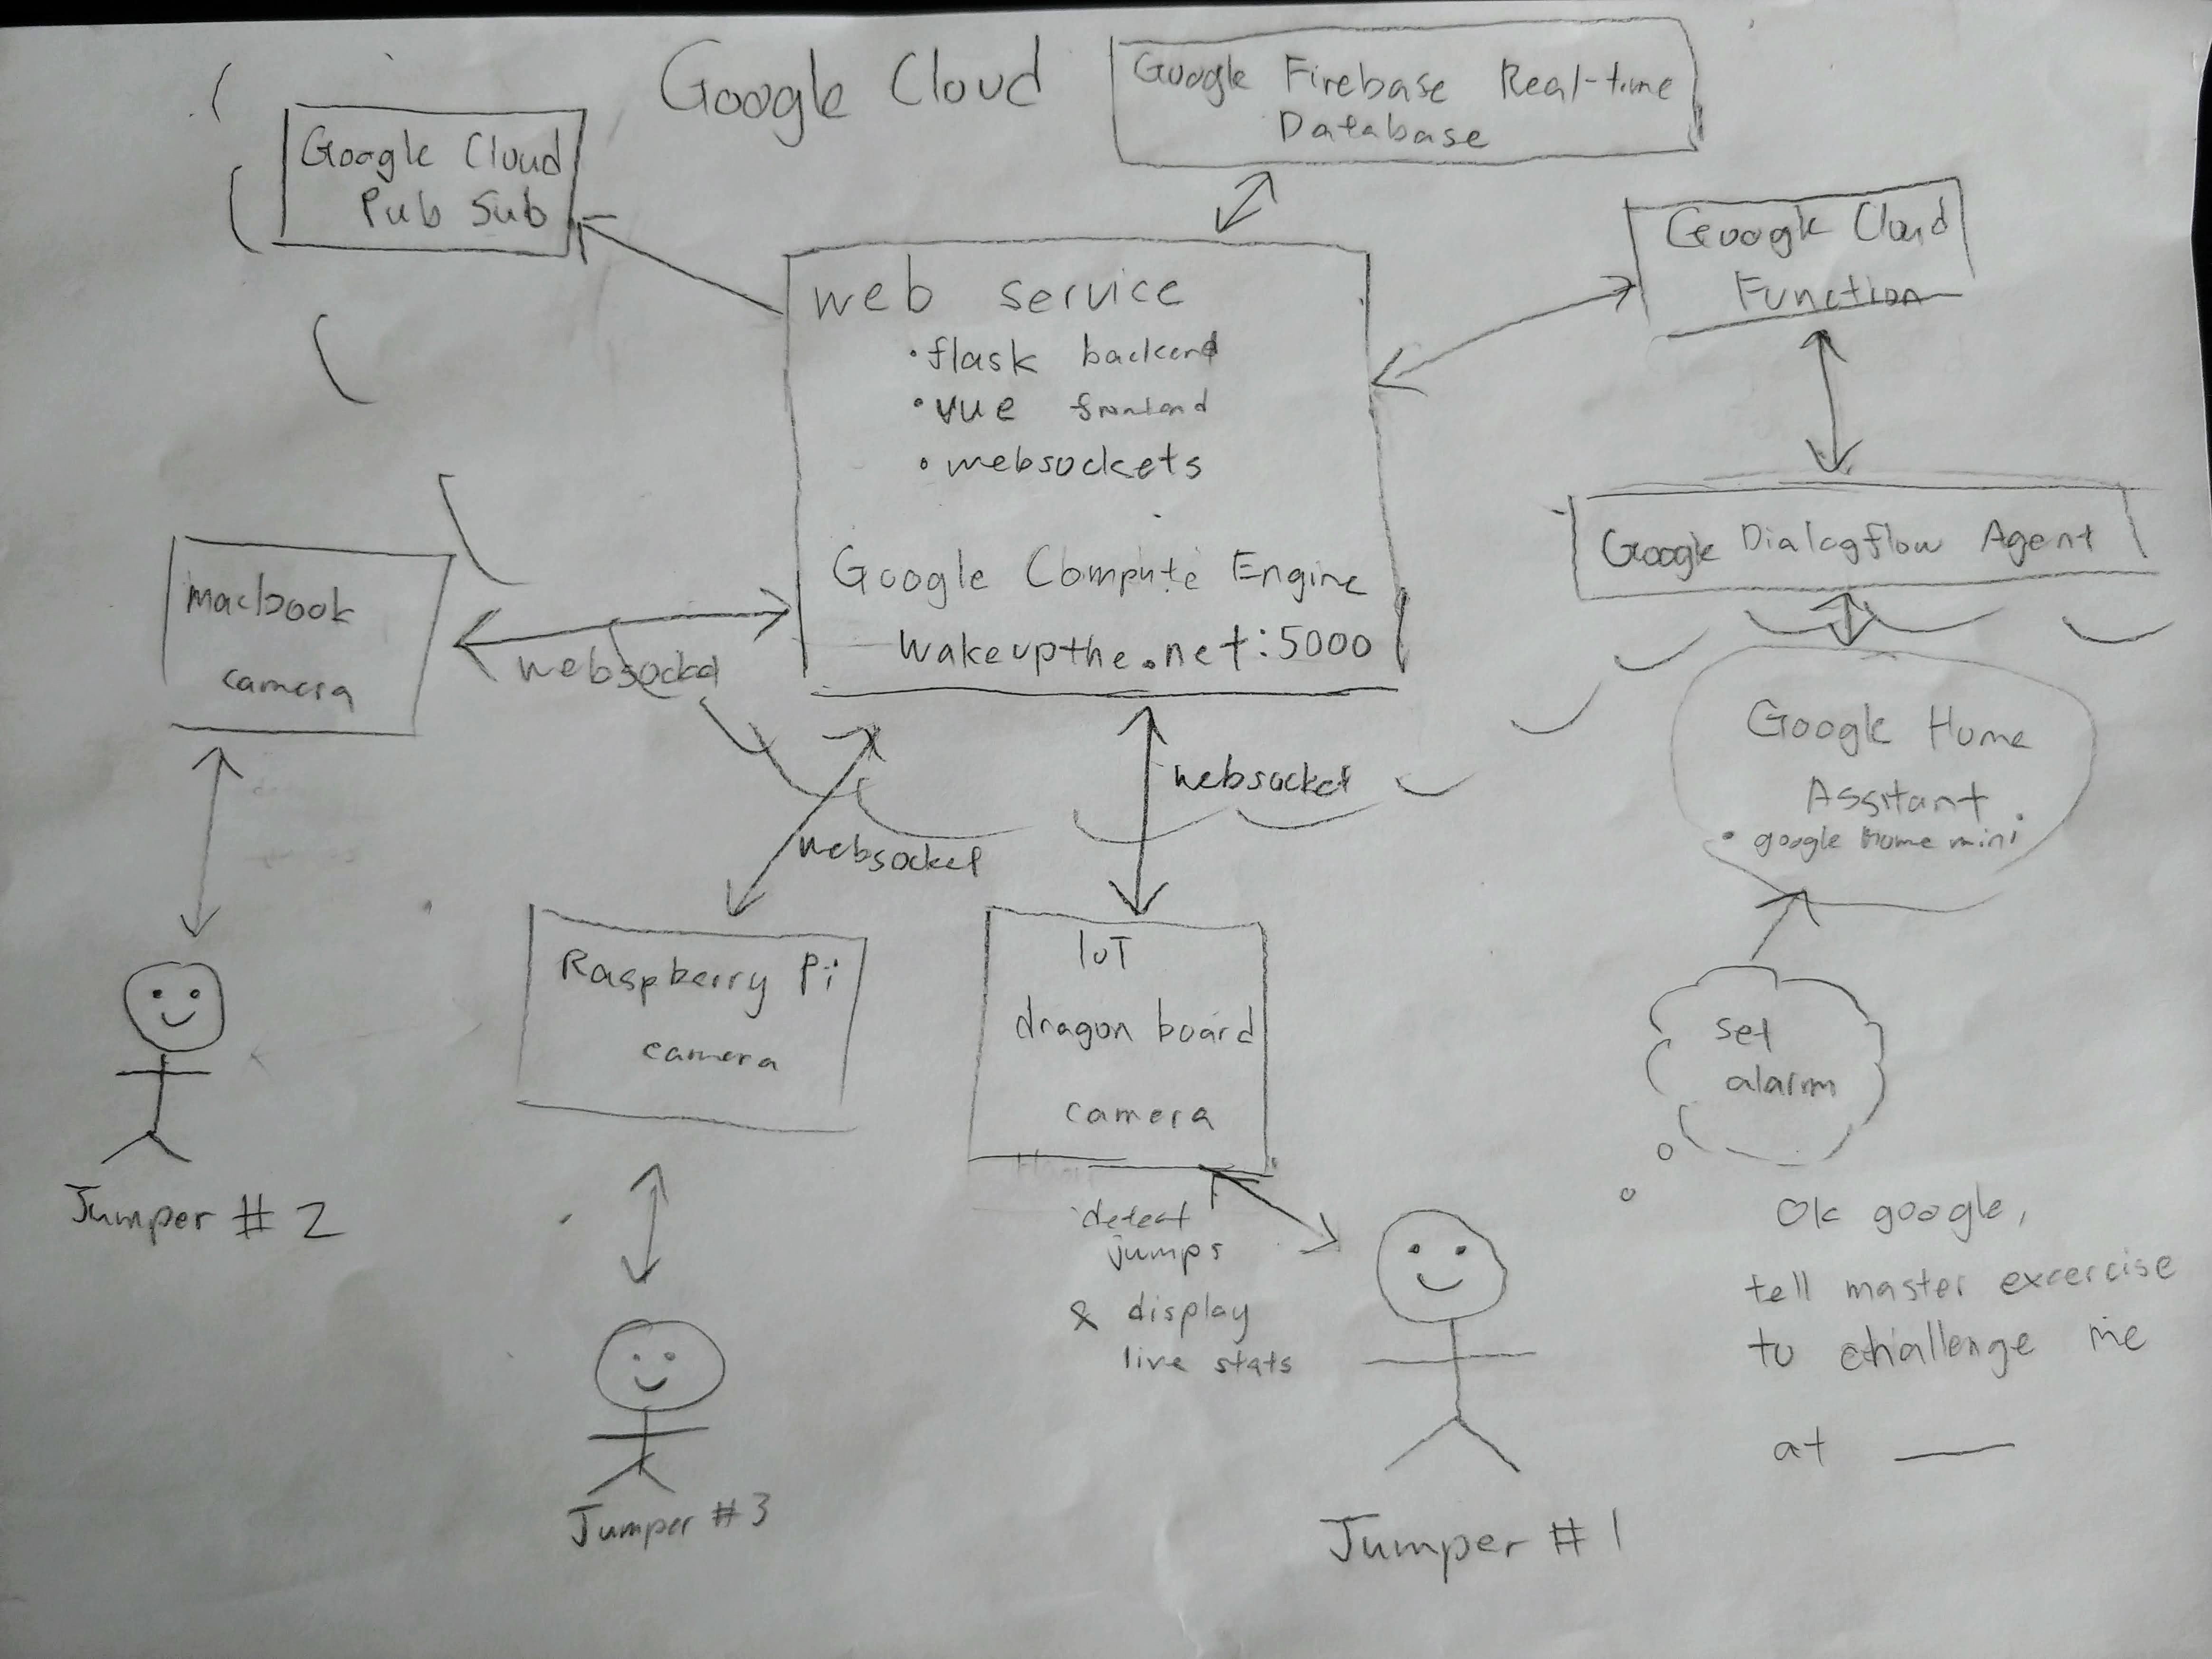 Google Cloud
Google Firebase Real-time
Database
Google Cloud
Pub Sub
Google Cloud
Function
web service
• flask backend
• vue frontend
• websockets
Google Compute Engine
wakeupthe.net:5000
Google Dialogflow Agent
macbook
camera
websocket
websocket
websocket
Google Home
Assitant
• google Home mini
Raspberry Pi
camera
IoT
dragon board
camera
set
alarm
detect
jumps
& display
live stats
Ok google,
tell master excercise
to challenge me
at ___
Jumper #2
Jumper #3
Jumper #1